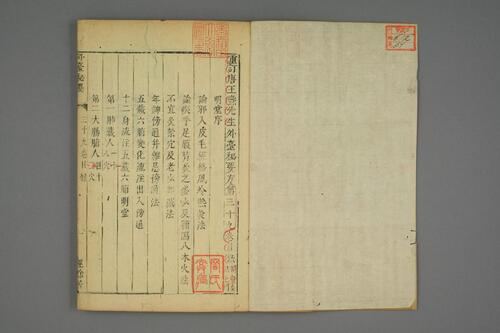 重訂唐王燾先生外臺秘要方第三十九卷目
明堂序
論邪入皮毛經絡風冷熱灸法
論疾手足腹背灸之多少及補瀉八木火法
不宜灸禁穴及老少加減法
年神傍通并雜忌傍通法
五藏六腑變化流注出入傍通
十二身流注五藏六腑明堂
第一肺藏人一十
第二大腸腑人四
外臺秘要
三十九卷目錄
經餘居